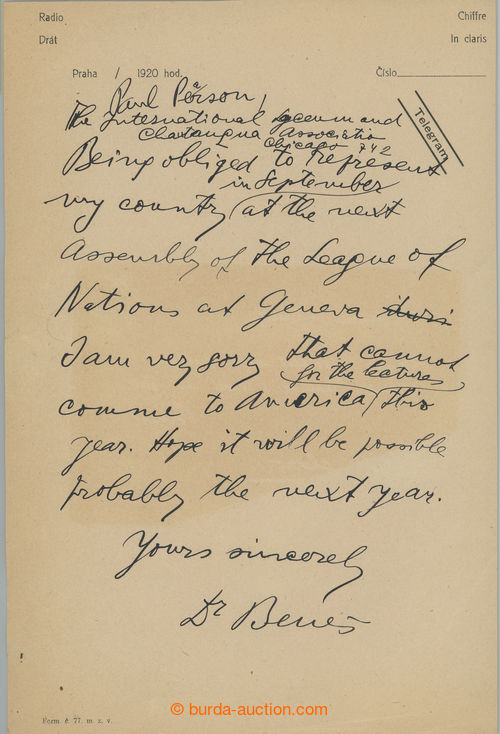 Radio
Chiffre
Drát
In claris
Praha / 1920 hod.
Číslo
Telegram
Paul Pearson,
The International Lyceum and
Chautauqua Associatio
Chicago 742
Being obliged to represent
in September
my country at the next
Assembly of the League of
Nations at Geneva
I am very sorry that cannot
for the lectures
comme to America this
year. Hope it will be possible
probably the next year.
Yours sincerely
Dr Beneš
Form. č. 77. m. z. v.
© burda-auction.com